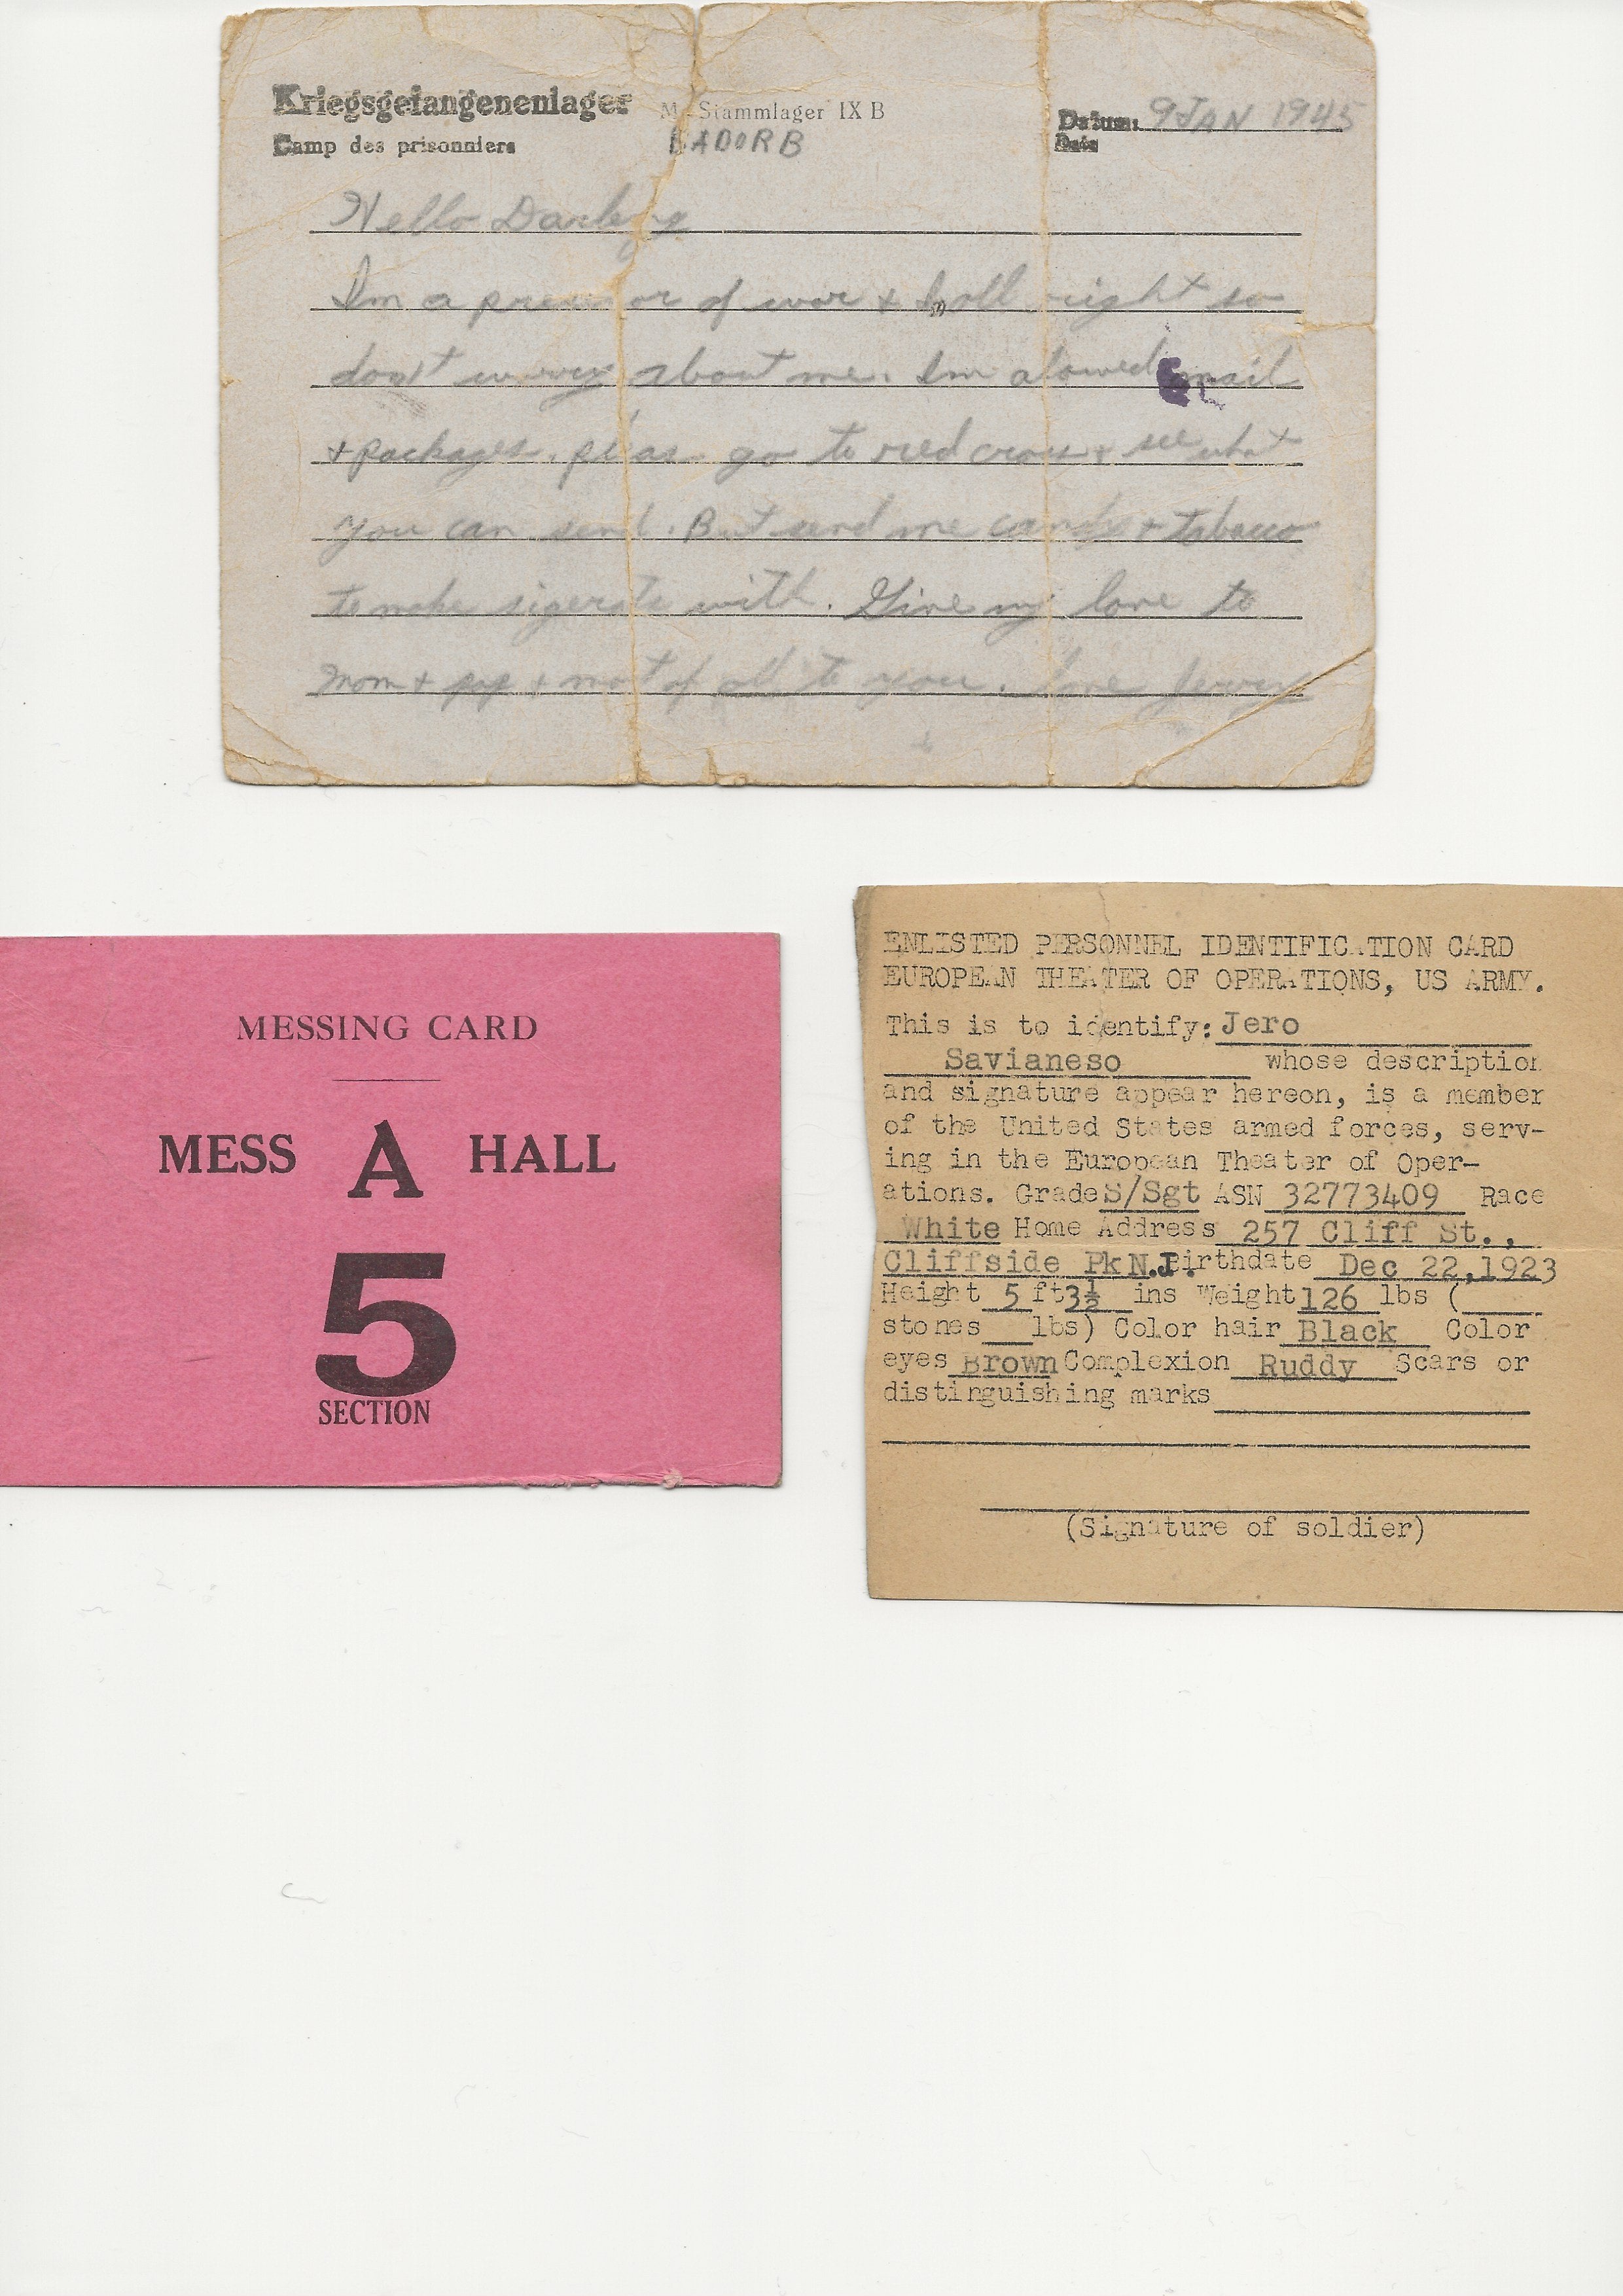 Kriegsgefangenenlager M.-Stammlager IX B Datum: 9 JAN 1945
Camp des prisonniers BADORB Date
Hello Darling
Im a prisoner of war + Im all right so
don't worry about me. Im alowed mail
+ packages. pleas go to red cross + see what
you can send. But send me candy + tobacco
to make sigerate with. Give my love to
Mom + pop + most of all to you. love Jerry
MESSING CARD
MESS A HALL
5
SECTION
ENLISTED PERSONNEL IDENTIFICATION CARD
EUROPEAN THEATER OF OPERATIONS, US ARMY.
This is to identify: Jero
Savianeso whose description
and signature appear hereon, is a member
of the United States armed forces, serv-
ing in the European Theater of Oper-
ations. Grade S/Sgt ASN 32773409 Race
White Home Address 257 Cliff St.,
Cliffside Pk N.J. Birthdate Dec 22,1923
Height 5 ft 3½ ins Weight 126 lbs (
stones lbs) Color hair Black Color
eyes Brown Complexion Ruddy Scars or
distinguishing marks
(Signature of soldier)